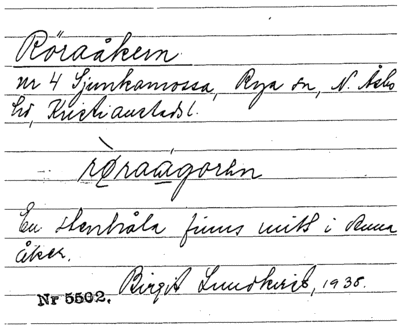 Röraåkern
nr 4 Sjunkamossa, Rya sn, N. Åsbo
hd, Kristianstads l.
röraågorḥn
En stenhåla finns mitt i denna
åker.
Birgit Lundkvist, 1935.
Nr 5502.